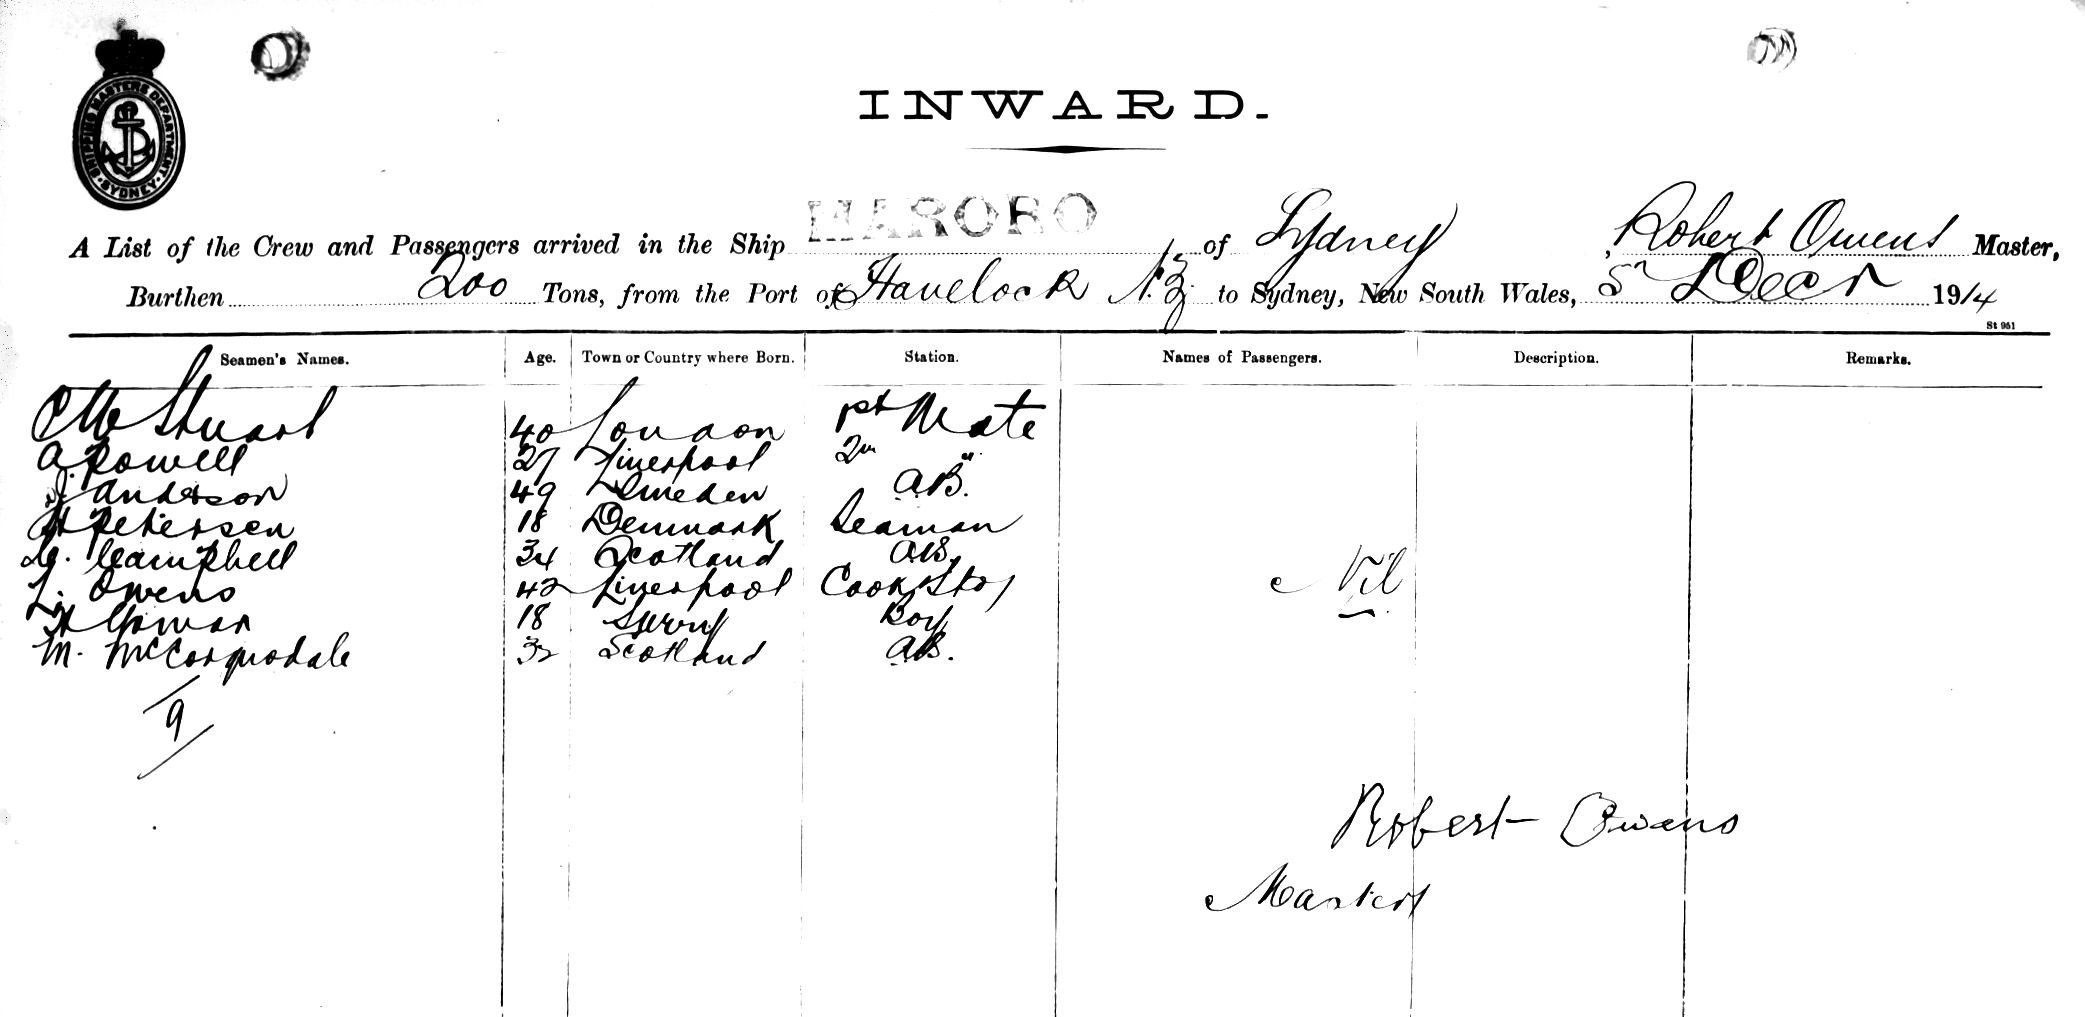 SHIPPING MASTERS DEPARTMENT SYDNEY
INWARD.
A List of the Crew and Passengers arrived in the Ship MARORO of Sydney, Robert Owens Master,
Burthen 200 Tons, from the Port of Havelock N.Z. to Sydney, New South Wales, 5th Decr 1914
St 961
Seamen's Names. Age. Town or Country where Born. Station. Names of Passengers. Description. Remarks.
Stuart 40 London 1st Mate
A. Powell 27 Liverpool 2nd "
J. Anderson 49 Sweden A.B.
H Petersen 18 Denmark Seaman
Campbell 34 Scotland A.B.
L. Owens 42 Liverpool Cook & Std
H 18 Surry Boy
M. McCorquodale 32 Scotland A.B.
Nil
9
Robert Owens
Master